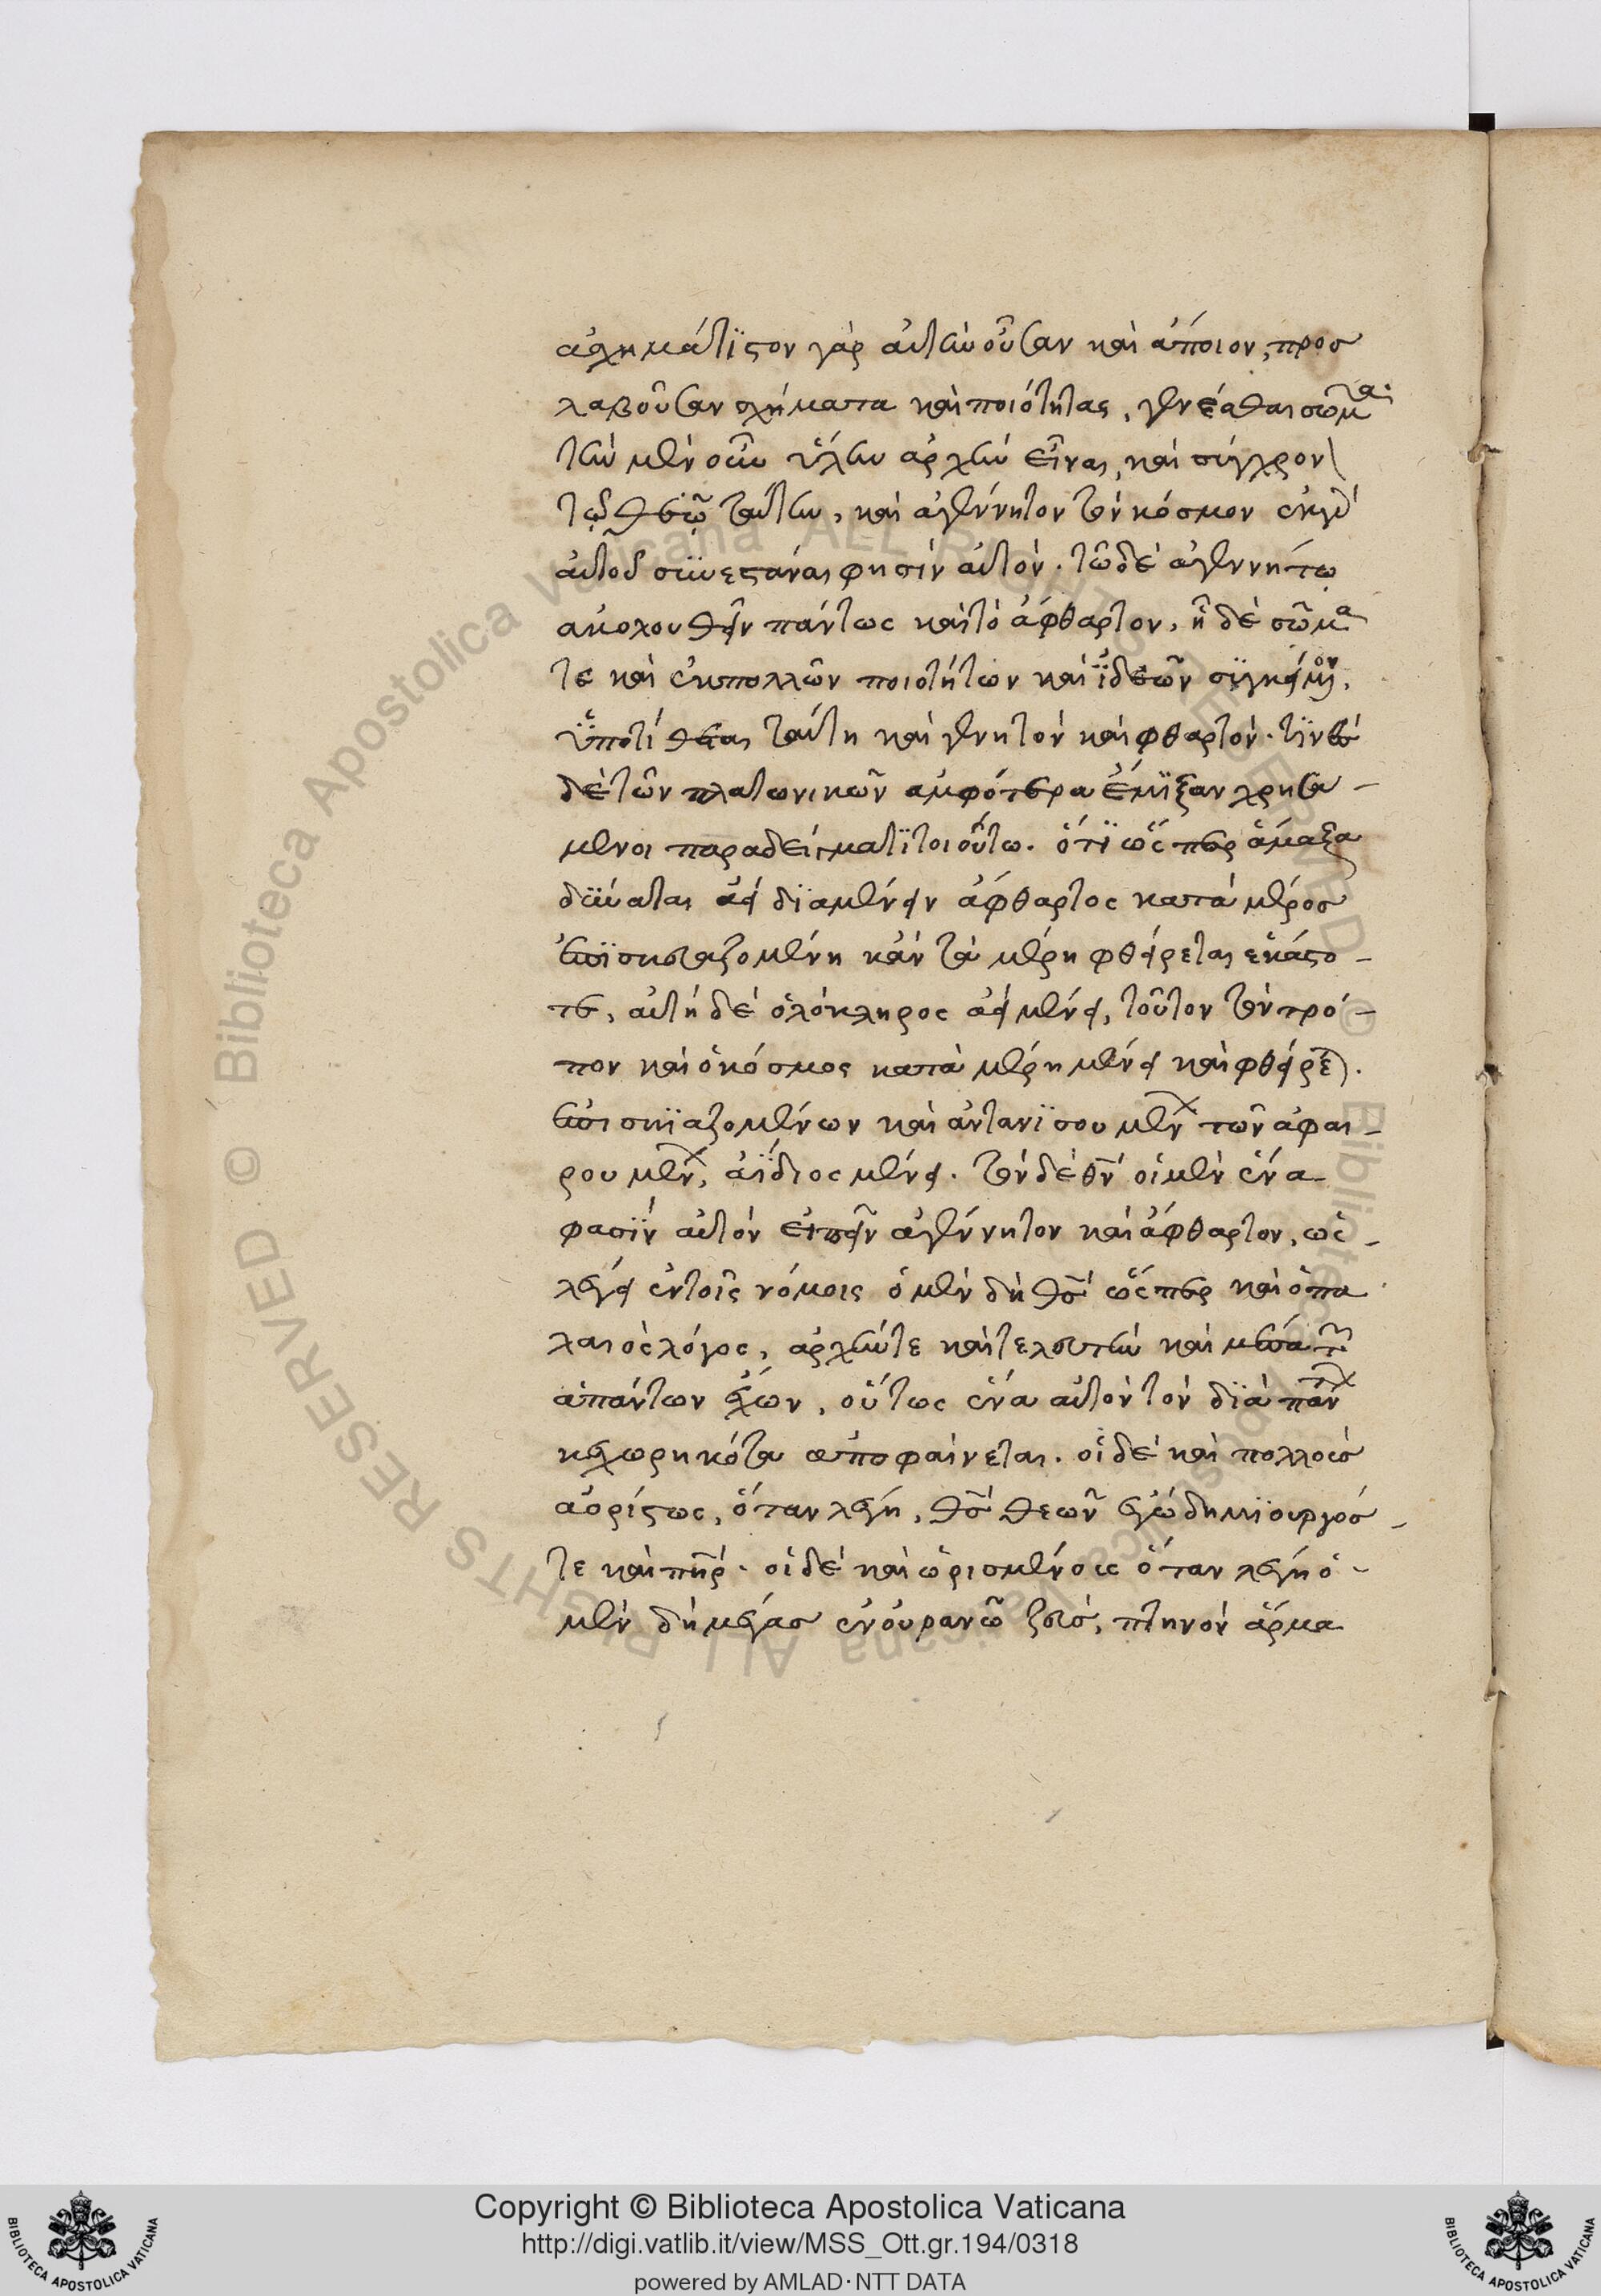 ἀσχημάτϊστον γὰρ αὐτὴν οὖσαν καὶ ἄποιον, προσ
λαβοῦσαν σχήματα καὶ ποιότητας, γενέσθαι σώματα.
τὴν μὲν οὖν ὕλην ἀρχὴν εἶναι, καὶ σύγχρον
τῷ θεῷ ταύτην, καὶ ἀγέννητον τὸν κόσμον ἐκ γὰρ
αὐτοῦ συνεστάναι φησὶν αὐτόν. τῶ δὲ ἀγεννήτω
ἀκολουθεῖν πάντως καὶ τὸ ἄφθαρτον, ἧ δὲ σῶμα
τε καὶ ἐκ πολλῶν ποιοτήτων καὶ ἰδεῶν συγκείμενον,
ὑποτίθεται ταύτη καὶ γενητὸν καὶ φθαρτόν. τινὲς
δὲ τῶν πλατωνικῶν ἀμφότερα ἔμϊξαν χρησά-
μενοι παραδείγματϊ τοιούτω. ὅτϊ ὥσπερ ἅμαξα
δύναται ἀεὶ δϊαμένειν ἄφθαρτος κατὰ μέρος
ἐπϊσκευαζομένη κἂν τὰ μέρη φθείρεται ἑκάστο-
τε, αὐτὴ δὲ ὁλόκληρος ἀεὶ μένει, τοῦτον τὸν τρό-
πον καὶ ὁ κόσμος κατὰ μέρη μένει καὶ φθείρεται.
ἐπισκϊαζομένων καὶ ἀντανϊσουμένων τῶν ἀφαι-
ρουμένων, ἀΐδιος μένει. τὸν δὲ θν οἱ μὲν ἕνα
φασὶν αὐτὸν εἰπεῖν ἀγέννητον καὶ ἄφθαρτον, ὡς
λέγει ἐν τοῖς νόμοις ὁ μὲν δὴ θς ὥσπερ καὶ ὁ πα
λαιὸς λόγος, ἀρχήν τε καὶ τελευτὴν καὶ μέσα τῶν
ἁπάντων ἔχων, οὕτως ἕνα αὐτὸν τὸν δϊὰ πάντων
κεχωρηκότα ἀποφαίνεται. οἱ δὲ καὶ πολλοὺς
ἀορίστως, ὅταν λέγη, θς θεῶν ἐγὼ δημϊουργός
τε καὶ πηρ. οἱ δὲ καὶ ὡρισμένους ὅταν λέγη ὁ
μὲν δὴ μέγας ἐν οὐρανῶ ζεύς, πτηνὸν ἅρμα
Copyright © Biblioteca Apostolica Vaticana
http://digi.vatlib.it/view/MSS_Ott.gr.194/0318
powered by AMLAD·NTT DATA